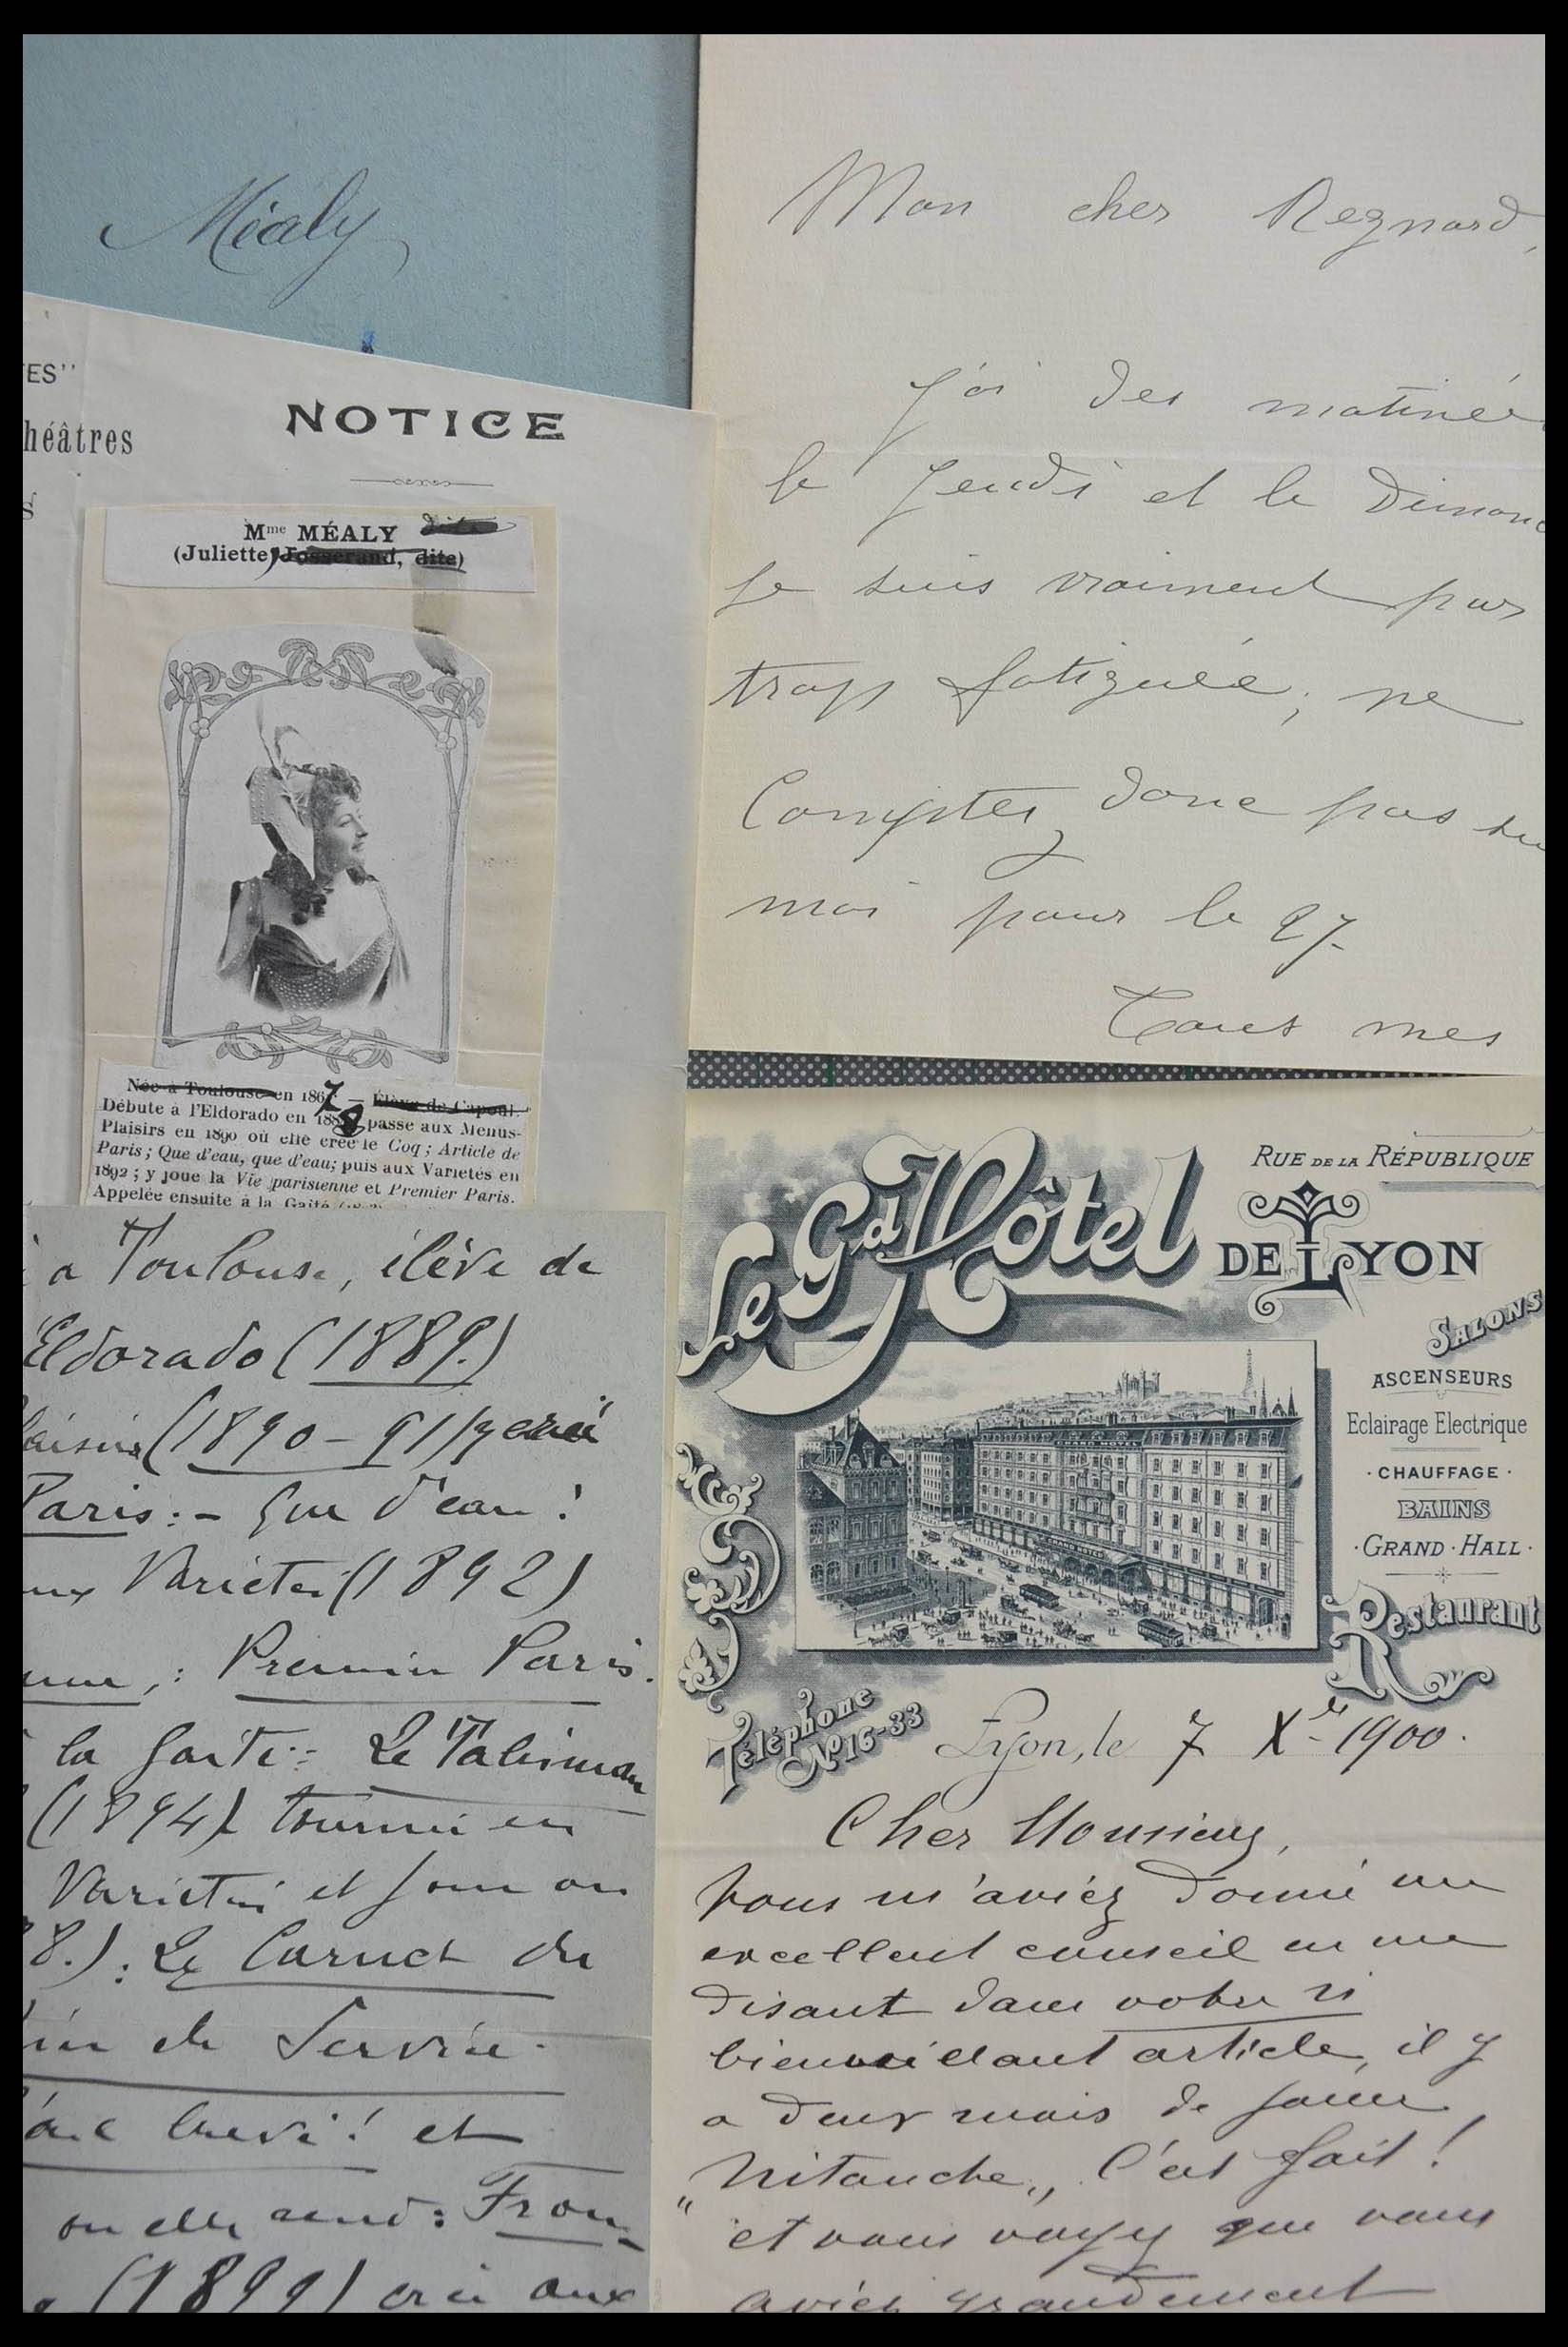 Méaly
ES"
héâtres
s
NOTICE
Mme MÉALY
(Juliette) Josserand, dite)
Née à Toulouse en 1867 — Élève de Capoul.
Débute à l'Eldorado en 1888 passe aux Menus-
Plaisirs en 1890 où elle crée le Coq ; Article de
Paris ; Que d'eau, que d'eau; puis aux Varietés en
1892 ; y joue la Vie parisienne et Premier Paris.
Appelée ensuite à la Gaîté
a Toulouse, élève de
Eldorado (1889.)
laisirs (1890-91) y créé
Paris :- Que d'eau !
aux Varietes (1892)
enne ; : Premier Paris.
la Gaité :- Le Talisman
(1894) tournée en
Varietés et joue au
8.) : Le Carnet du
de Service.
et
ou elle crée : Frou-
(1899) créé aux
Mon cher Regnard,
J'ai des matinée
le Jeudi et le Dimanc
je suis vraiment par
trop fatiguée ; ne
Comptez donc pas su
moi pour le 27.
Tous mes
Le Gd Hôtel
RUE DE LA RÉPUBLIQUE
DE LYON
SALONS
ASCENSEURS
Eclairage Electrique
· CHAUFFAGE ·
BAINS
· GRAND · HALL ·
Restaurant
GRAND HOTEL
GRAND HOTEL
Téléphone
No 16-33
Lyon, le 7 Xre 1900.
Cher Monsieur,
Vous m'aviez donné un
excellent conseil en me
disant dans votre si
bienveillant article, il y
a deux mois de jouer
"Nitouche„ C'est fait !
et vous voyez que vous
aviez grandement